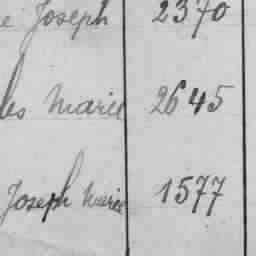 e Joseph 2370
les Marie 2645
Joseph Marie 1577